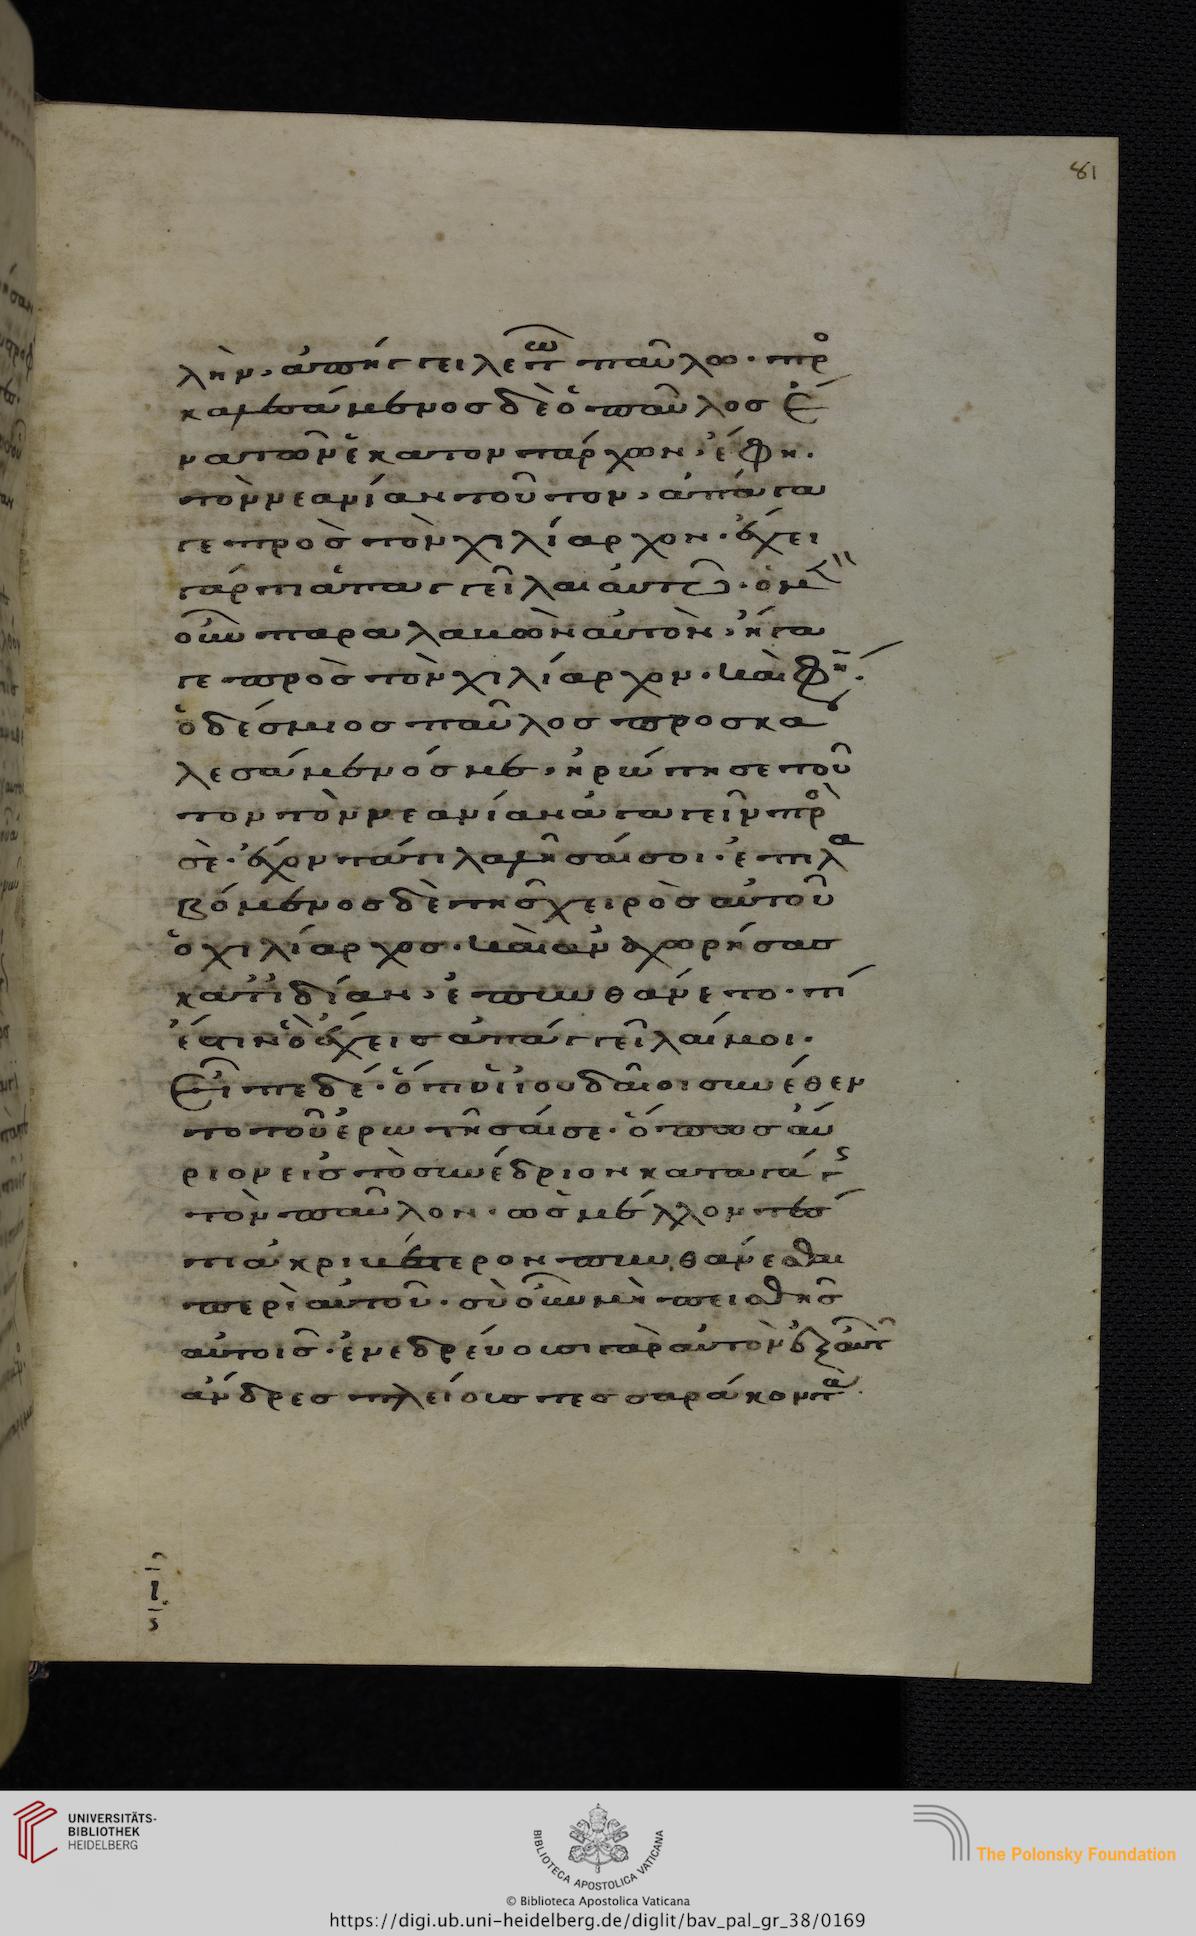 81
λὴν, ἀπήγγειλε τῶ παύλω· προ
καλεσάμενος δὲ ὁ παῦλος ἕ
να τῶν ἑκατοντάρχων, ἔφη·
τὸν νεανίαν τοῦτον, ἀπάγα
γε πρὸς τὸν χιλίαρχον· ἔχει
γάρ τι ἀπαγγεῖλαι αὐτῶ· ὁ μὲν
οὖν παραλαβὼν αὐτὸν, ἤγα
γε πρὸς τὸν χιλίαρχον. καὶ φησί·
ὁ δέσμιος παῦλος προσκα
λεσάμενός με, ἠρώτησε τοῦ
τον τὸν νεανίαν ἀγαγεῖν πρὸς
σὲ· ἔχοντά τι λαλῆσαί σοι· ἐπιλα
βόμενος δὲ τῆς χειρὸς αὐτοῦ
ὁ χιλίαρχος· καὶ ἀναχωρήσας
κατϊδίαν, ἐπυνθάνετο· τί
ἐστιν ὃ ἔχεις ἀπαγγεῖλαί μοι·
Εἶπε δέ· ὅτι οἱ ἰουδαῖοι συνέθεν
το τοῦ ἐρωτῆσαί σε· ὅπως αὔ
ριον εἰς τὸ συνέδριον καταγάγῃς
τὸν παῦλον· ὡς μέλλοντές
τι ἀκριβέστερον πυνθάνεσθαι
περὶ αὐτοῦ· σὺ οὖν μὴ πεισθῆς
αὐτοῖς· ἐνεδρεύουσι γὰρ αὐτὸν ἐξ αὐτῶν
ἄνδρες πλείους τεσσαράκοντα
UNIVERSITÄTS-
BIBLIOTHEK
HEIDELBERG
BIBLIOTECA APOSTOLICA VATICANA
The Polonsky Foundation
© Biblioteca Apostolica Vaticana
https://digi.ub.uni-heidelberg.de/diglit/bav_pal_gr_38/0169